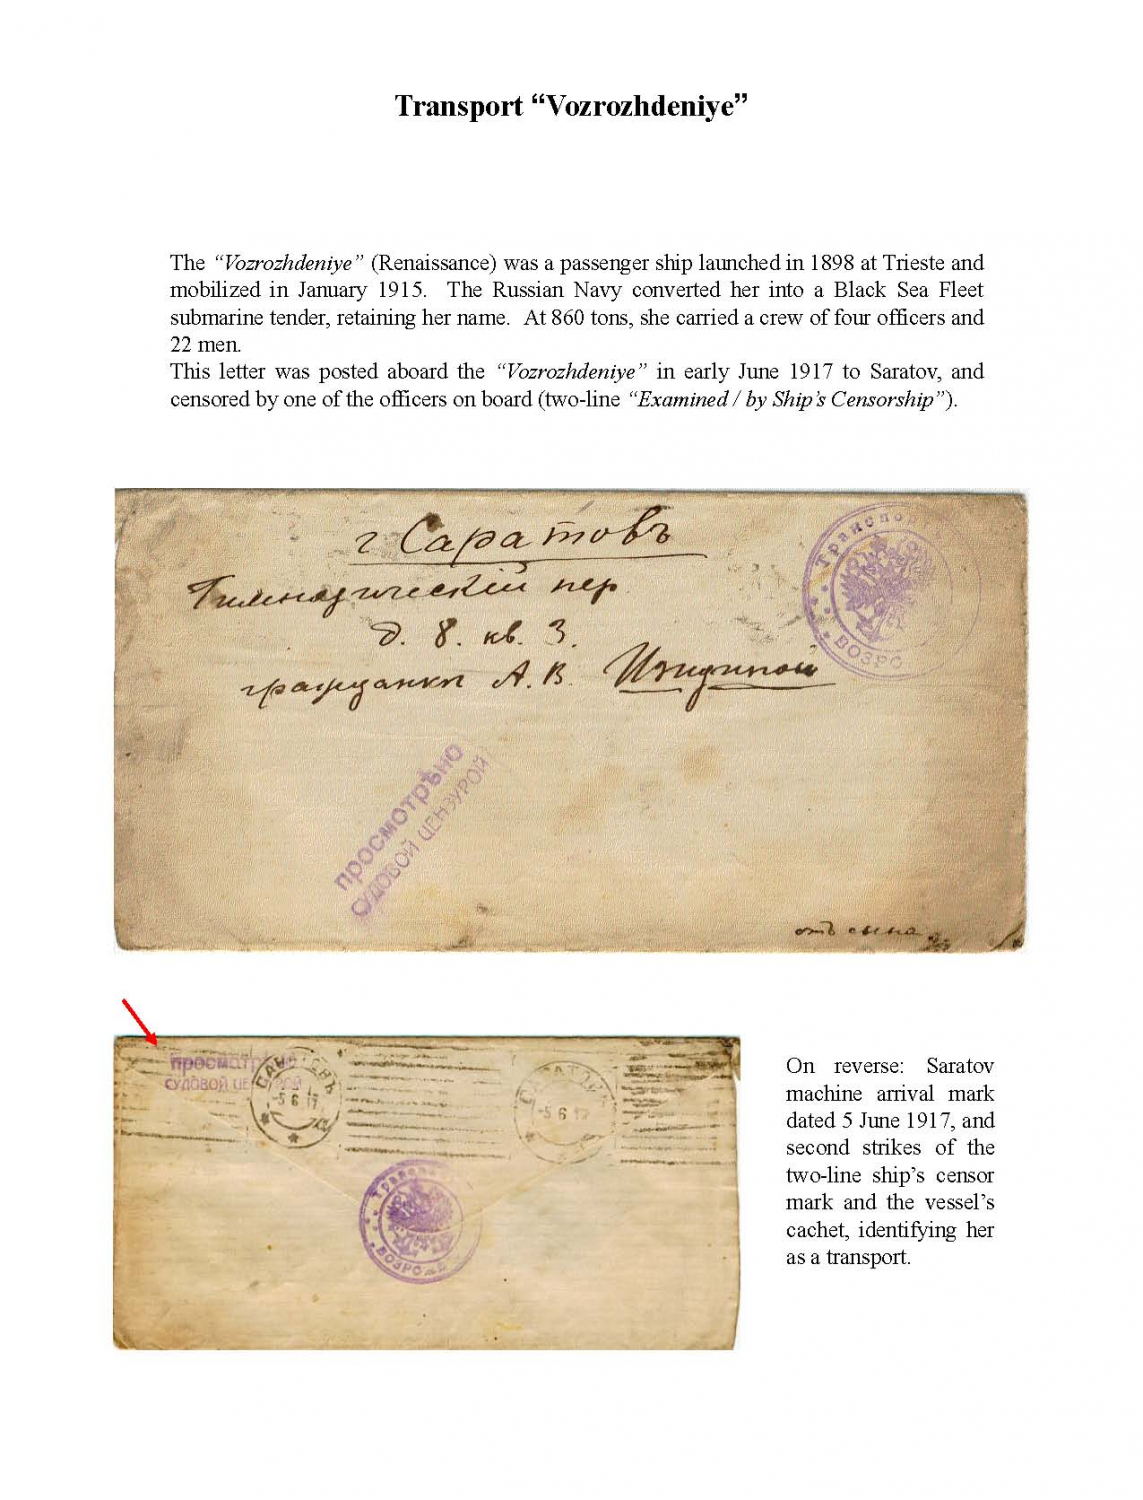 Transport “Vozrozhdeniye”
The “Vozrozhdeniye” (Renaissance) was a passenger ship launched in 1898 at Trieste and
mobilized in January 1915. The Russian Navy converted her into a Black Sea Fleet
submarine tender, retaining her name. At 860 tons, she carried a crew of four officers and
22 men.
This letter was posted aboard the “Vozrozhdeniye” in early June 1917 to Saratov, and
censored by one of the officers on board (two-line “Examined / by Ship’s Censorship”).
г Саратовъ
Гимназический пер
д. 8. кв. 3.
гражданки А. В.
Транспор
ВОЗРО
просмотрѣно
СУДОВОЙ ЦЕНЗУРОЙ
отъ сына
просмотр
СУДОВОЙ ЦЕ РОЙ
5 6 17
5 6 17
ВОЗРОЖД
On reverse: Saratov
machine arrival mark
dated 5 June 1917, and
second strikes of the
two-line ship’s censor
mark and the vessel’s
cachet, identifying her
as a transport.